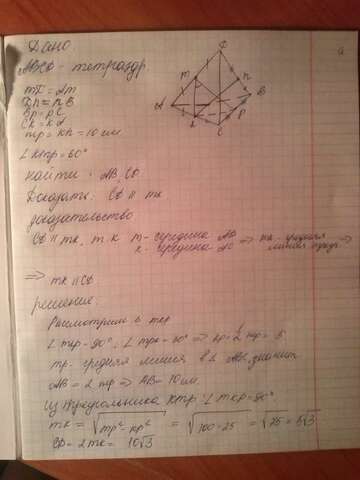 Дано
ABCD - тетраэдр.
mD = Am
Dn = nB
Bp = pC
CK = KA
mp = Kn = 10 см
∠ Kmp = 60°
найти: AB, CD
Доказать: CD || mK
доказательство
CD || mK, т к m - середина AD
K - середина AC ⇒ mK - средняя линия
⇒ mK || CD
решение:
Рассмотрим Δ mKp
mp - средняя линия в Δ
AB = 2 mp ⇒ AB = 10 см.
из треугольника Kmp: ∠ mKp = 90°
mK = √mp² - Kp² = √100-25 = √25 = 5√3
CD = 2 mK = 10√3
D
m
n
A
B
K
P
C